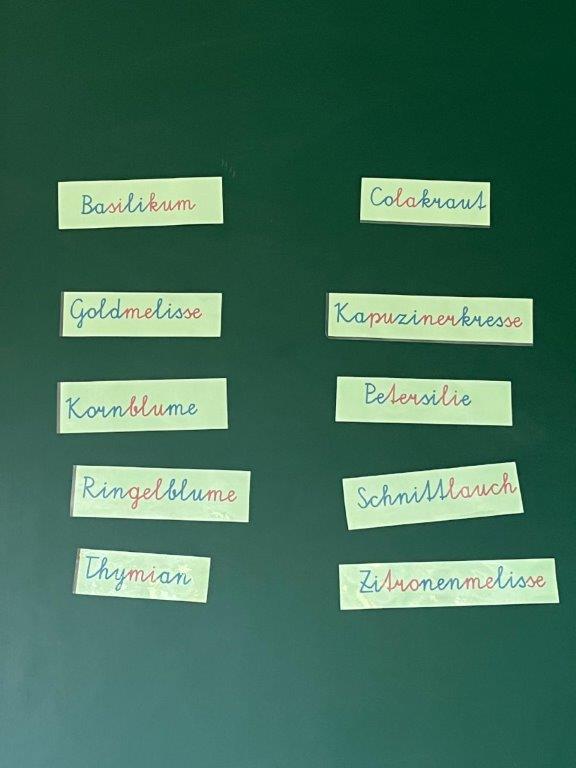 Basilikum
Colakraut
Goldmelisse
Kapuzinerkresse
Kornblume
Petersilie
Ringelblume
Schnittlauch
Thymian
Zitronenmelisse